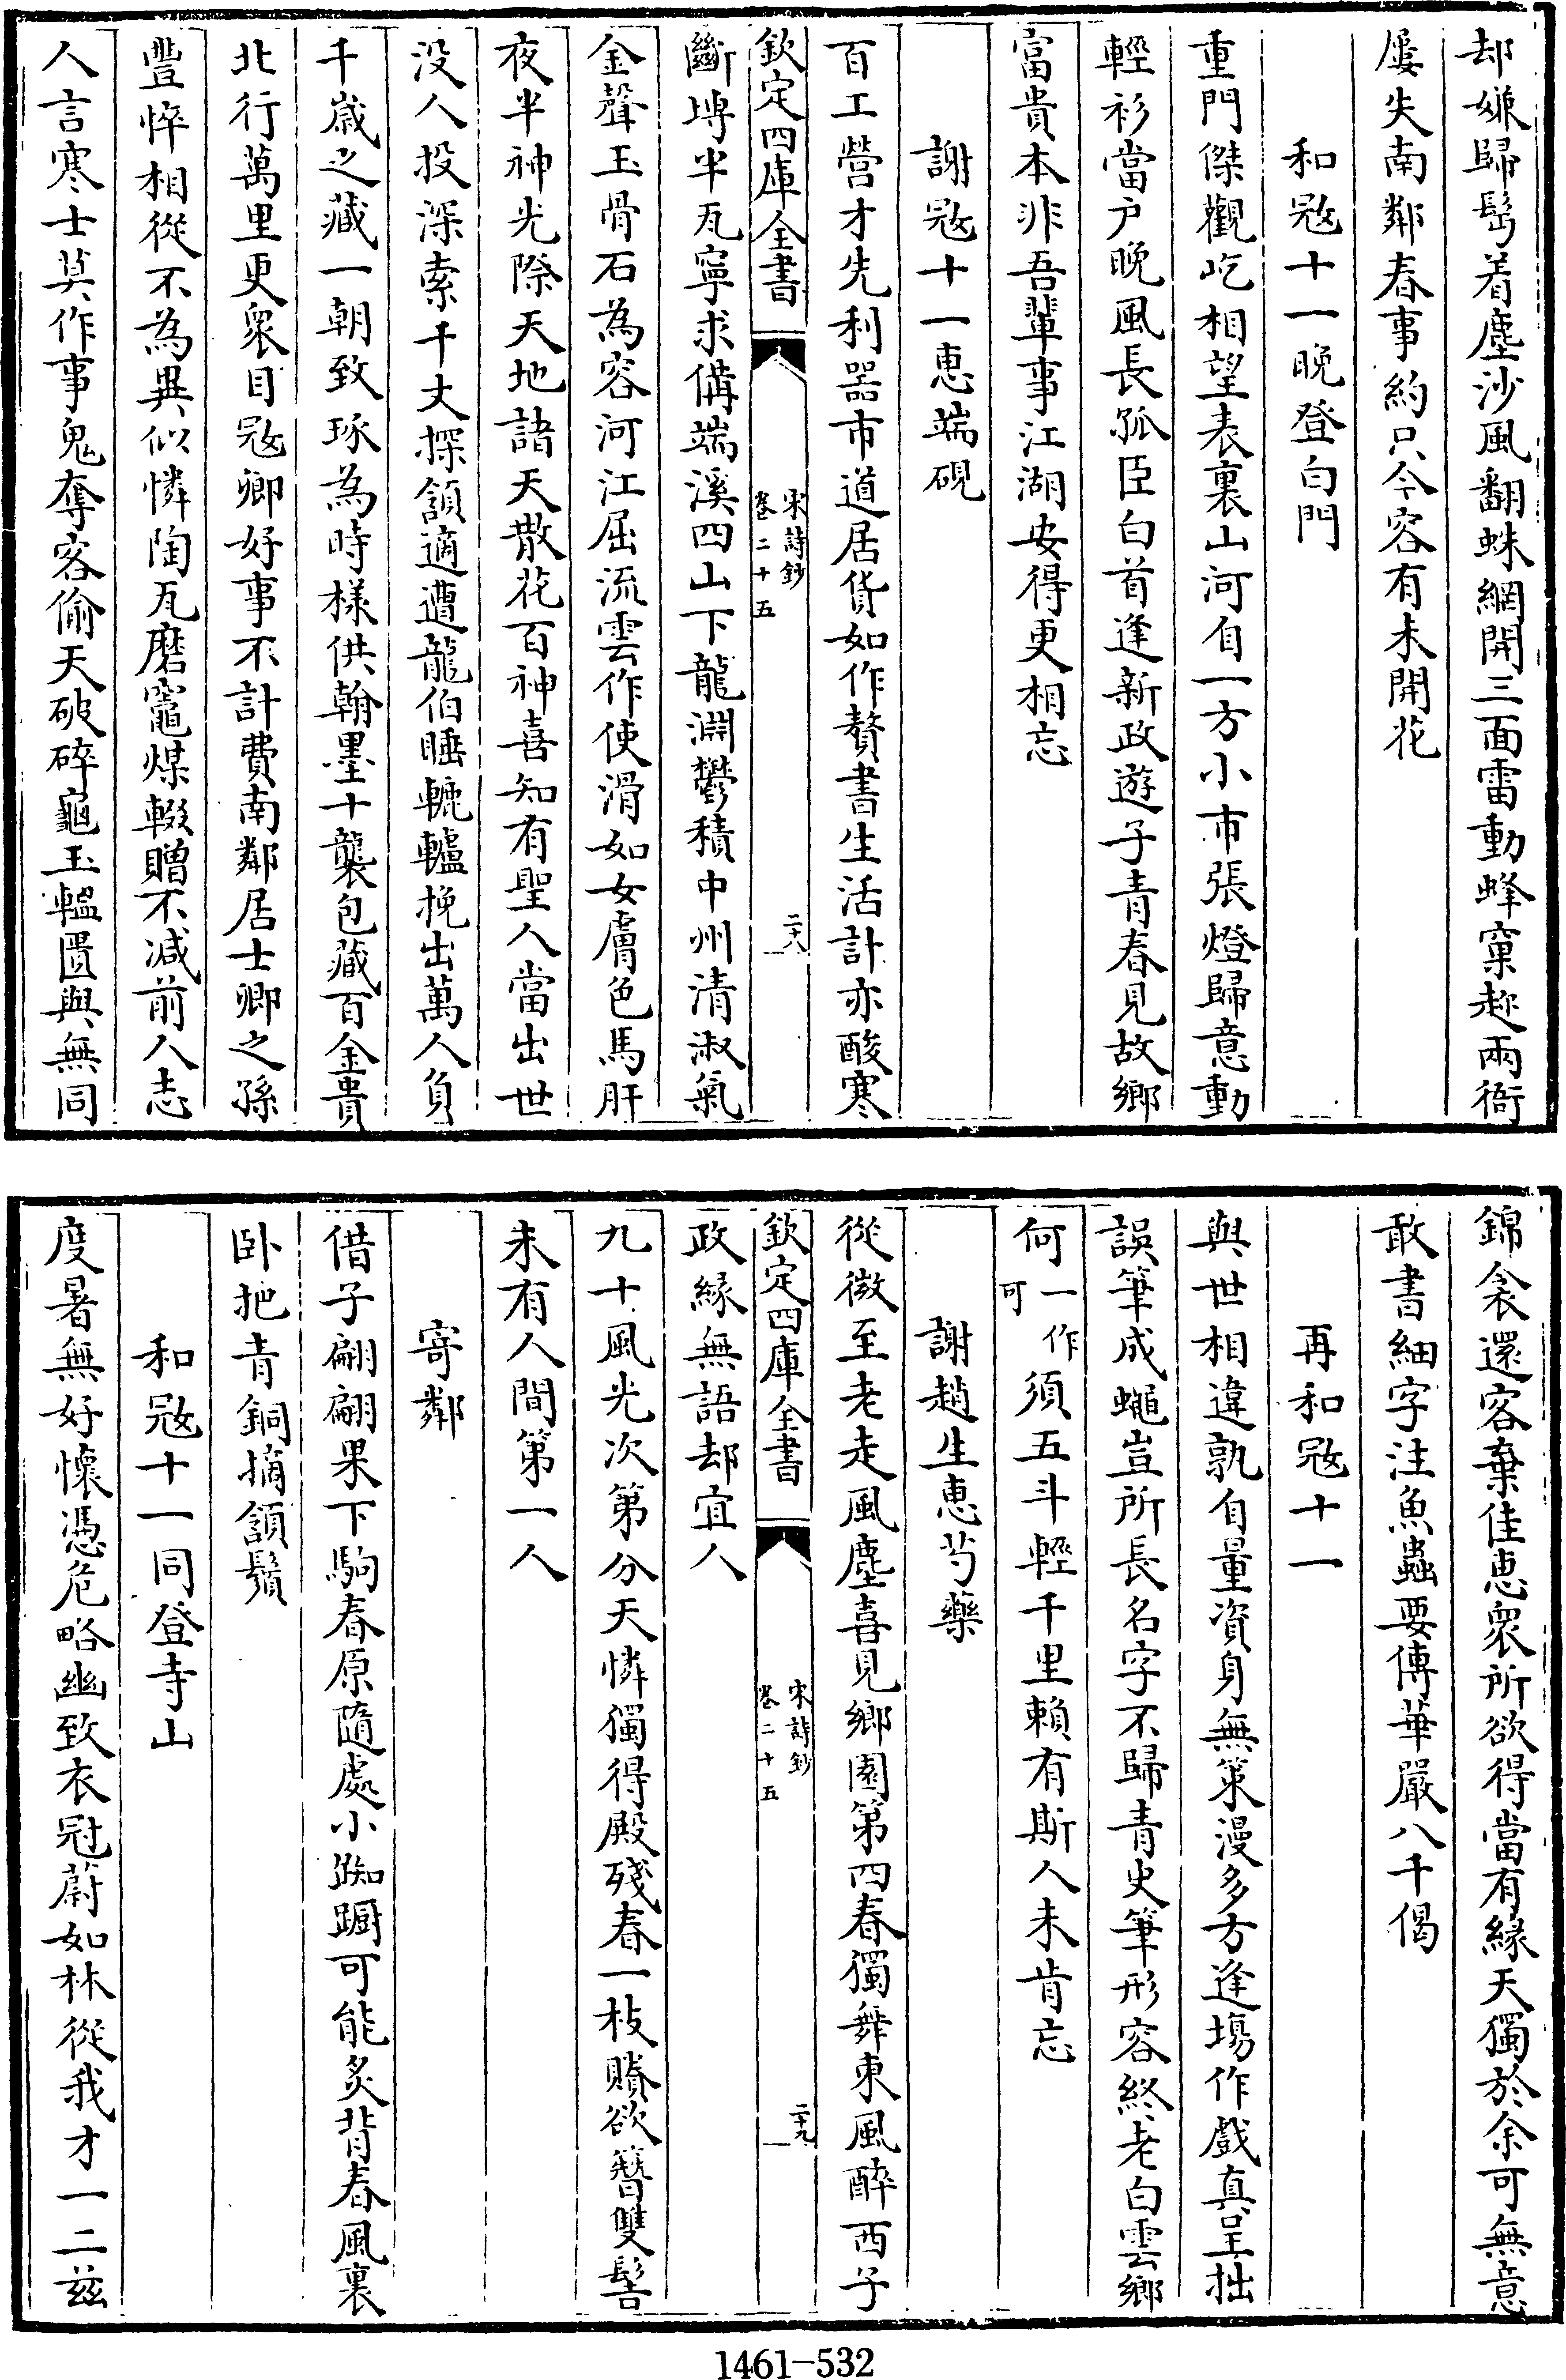 却嫌歸髩着塵沙風翻蛛網開三面雷動蜂窠趂兩衙
屢失南鄰春事約只今容有未開花
和㓂十一晚登白門
重門傑觀屹相望表裏山河自一方小市張燈歸意動
輕衫當户晚風長孤臣白首逢新政遊子青春見故鄉
富貴本非吾輩事江湖安得更相忘
謝㓂十一惠端硯
百工營才先利器市道居貨如作贅書生活計亦酸寒
欽定四庫全書
宋詩鈔
卷二十五
二十八
斷塼半瓦寧求備端溪四山下龍淵鬱積中州清淑氣
金聲玉骨石為容河江屈流雲作使滑如女膚色馬肝
夜半神光際天地諸天散花百神喜知有聖人當出世
没人投深索千丈探頷適遭龍伯睡轆轤挽出萬人負
千嵗之藏一朝致琢為時樣供翰墨十襲包藏百金貴
北行萬里更衆目㓂卿好事不計費南鄰居士卿之孫
豐悴相從不為異似憐陶瓦磨竈煤輟贈不減前人志
人言寒士莫作事鬼奪客偷天破碎龜玉韞匵與無同
錦衾還客棄佳惠衆所欲得當有緣天獨於余可無意
敢書細字注魚蟲要傳華嚴八千偈
再和㓂十一
與世相違孰自量資身無策漫多方逢塲作戲真呈拙
誤筆成蠅豈所長名字不歸青史筆形容終老白雲鄉
何一作可須五斗輕千里賴有斯人未肯忘
謝趙生惠芍藥
從微至老走風塵喜見鄉園第四春獨舞東風醉西子
欽定四庫全書
宋詩鈔
卷二十五
二十九
政緣無語却宜人
九十風光次第分天憐獨得殿殘春一枝賸欲簪雙髻
未有人間第一人
寄鄰
借子翩翩果下駒春原隨處小踟蹰可能炙背春風裏
卧把青銅摘頷鬚
和㓂十一同登寺山
度暑無好懷憑危略幽致衣冠蔚如林從我才一二兹
1461-532